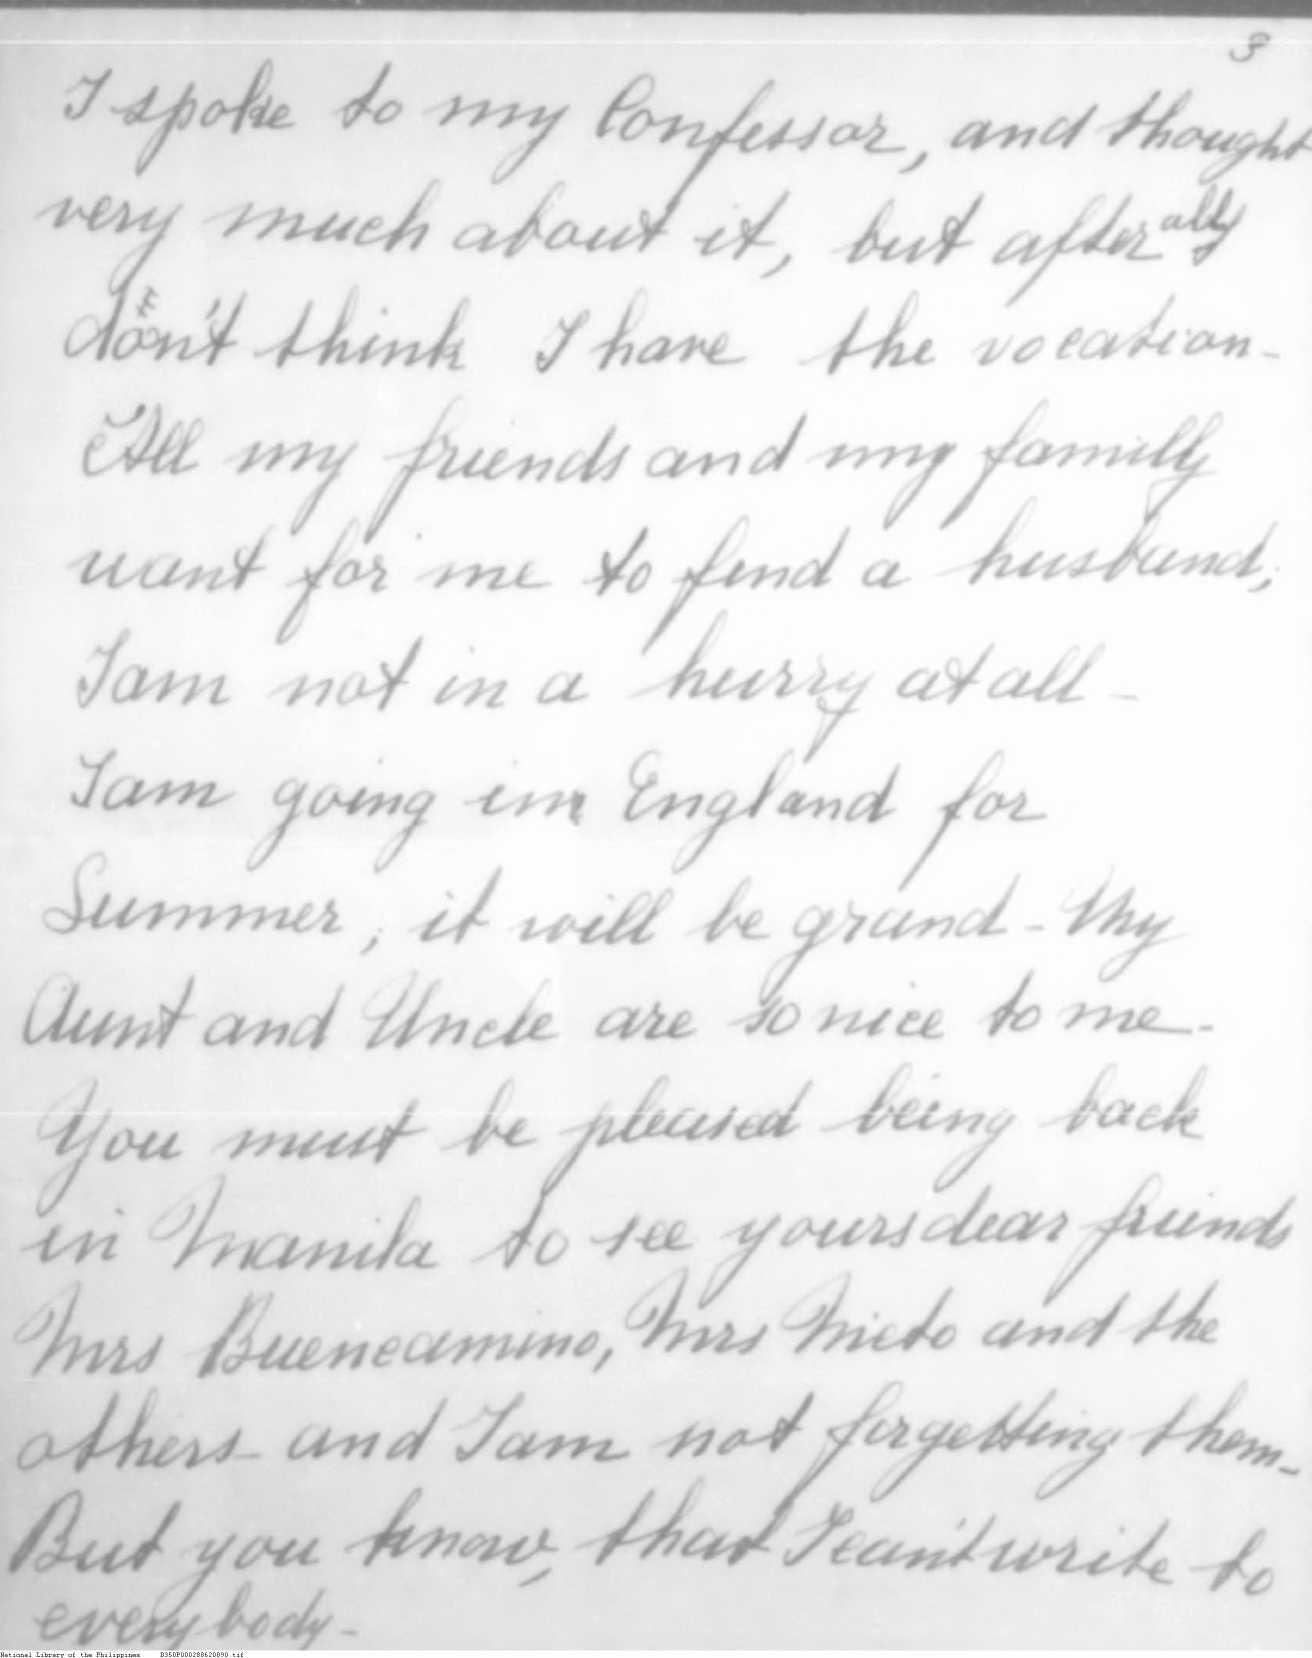 3
I spoke to my Confessor, and thought
very much about it, but after all I
don't think I have the vocation -
All my friends and my familly
want for me to find a husband;
I am not in a hurry at all -
I am going in England for
Summer, it will be grand - My
Aunt and Uncle are so nice to me -
You must be pleased being back
in Manila to see yours dear friends
Mrs Buencamino, Mrs Nieto and the
others - and I am not forgetting them -
But you know, that I can't write to
everybody -
National Library of the Philippines D350P000288620890.tif